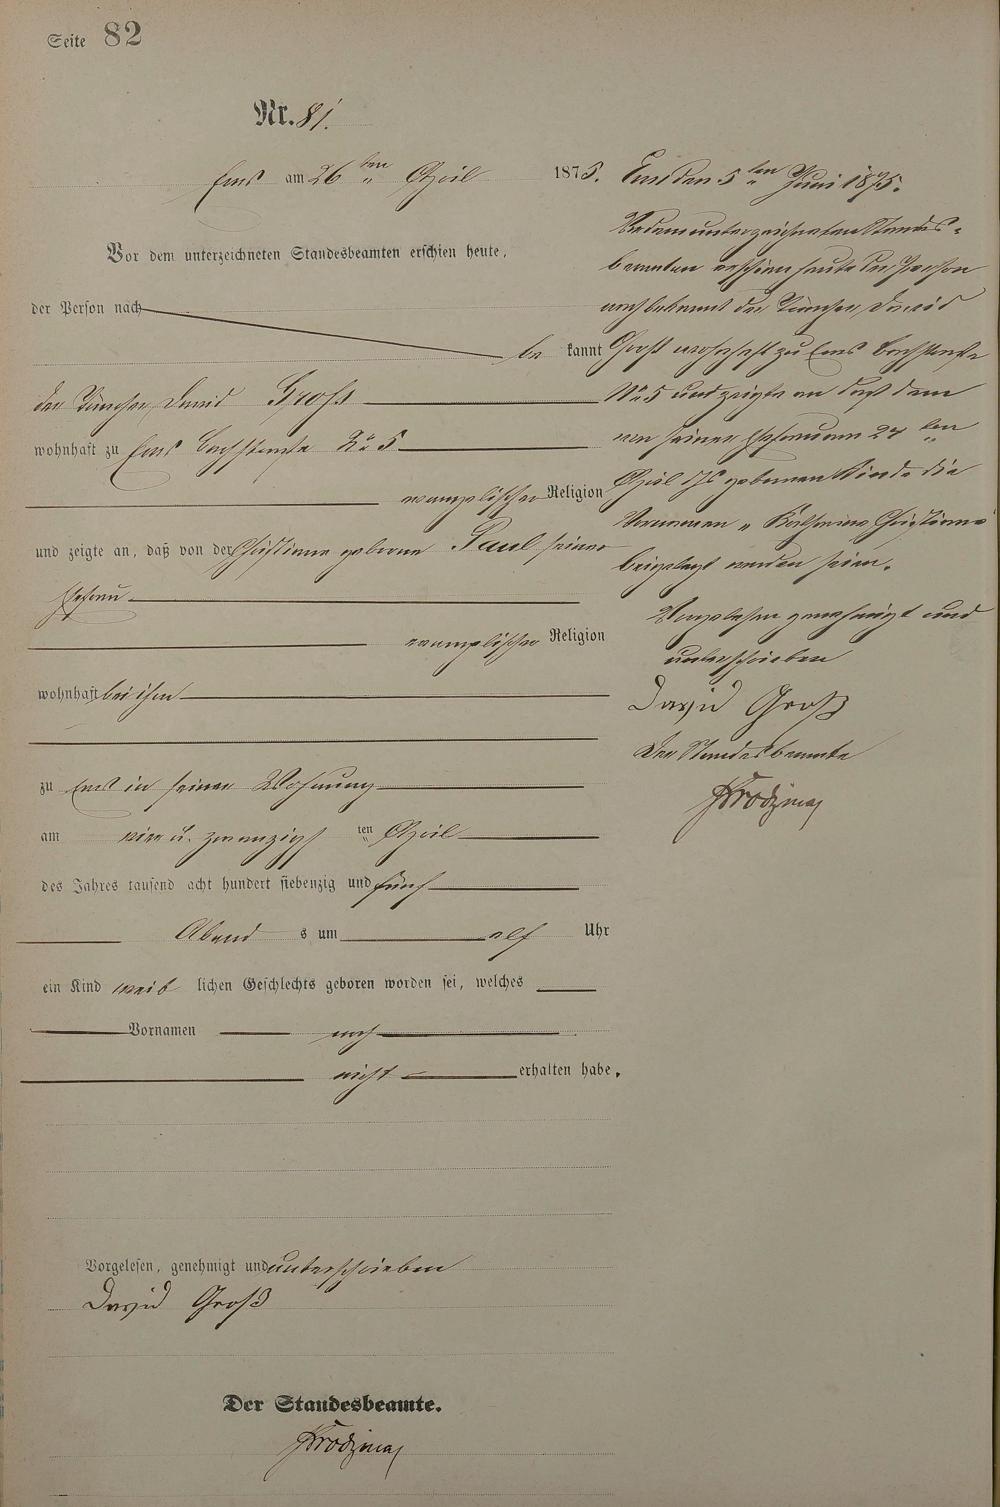 Seite 82
Nr. 81.
Ems am 26 ten April 1875.
Vor dem unterzeichneten Standesbeamten erschien heute,
der Person nach
be kannt
der Tüncher David Groß
wohnhaft zu Ems Bachstraße No 5
evangelischer Religion
und zeigte an, daß von der Christiane geborene Paul seiner
Ehefrau
evangelischer Religion
wohnhaft bei ihm
zu Ems in seiner Wohnung
am vier u. zwanzigsten April
des Jahres tausend acht hundert siebenzig und fünf
Abend s um elf Uhr
ein Kind weib lichen Geschlechts geboren worden sei, welches
Vornamen noch
nicht erhalten habe.
Vorgelesen, genehmigt und unterschrieben
David Groß
Der Standesbeamte.
Ems den 5 ten Juni 1875.
Vor dem unterzeichneten Standes-
beamten erschien heute der Person
nach bekannt der Tüncher David
Groß wohnhaft zu Ems Bachstraße
No 5 und zeigte an daß dem
von seiner Ehefrau am 24 ten
April Js geborenen Kinde die
Vornamen " Katharine Christiane "
beigelegt worden seien.
Vorgelesen genehmigt und
unterschrieben
David Groß
Der Standesbeamte